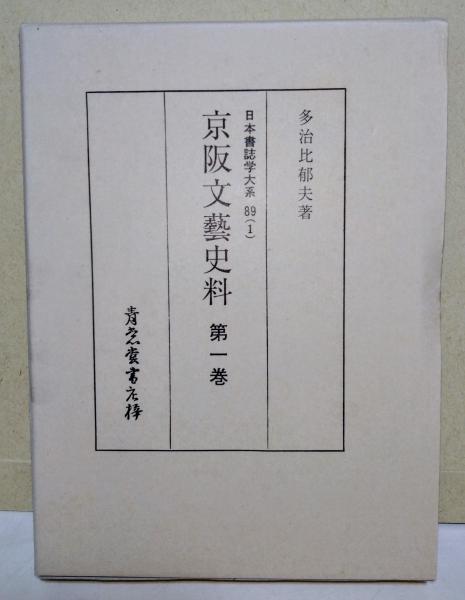 多治比郁夫著
日本書誌学大系 89(1)
京阪文藝史料 第一巻
青裳堂書店梓